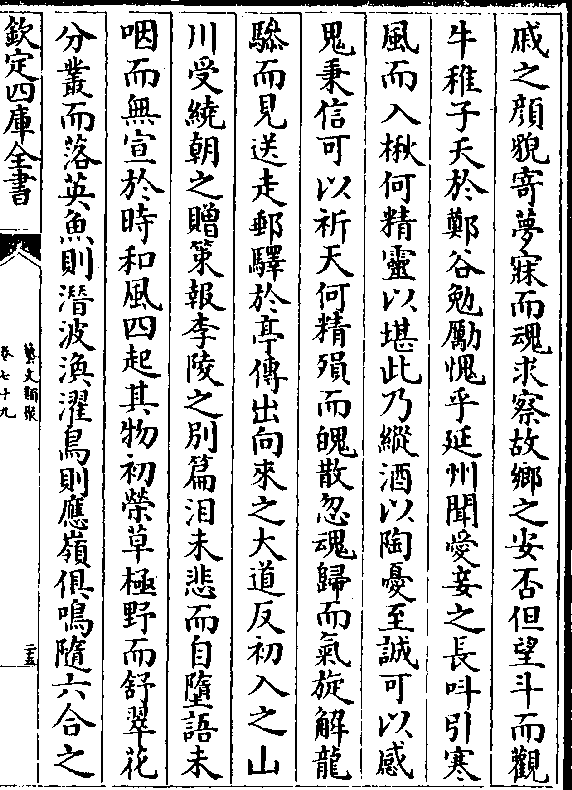 戚之顔貌寄夢寐而魂求察故鄉之安否但望斗而觀
牛稚子夭於鄭谷勉勵愧乎延州聞愛妾之長呌引寒
風而入楸何精靈以堪此乃縱酒以陶憂至誠可以感
鬼秉信可以祈天何精殞而魄散忽魂歸而氣旋解龍
驂而見送走郵驛於亭傳出向來之大道反初入之山
川受繞朝之贈策報李陵之別篇泪未悲而自墮語未
咽而無宣於時和風四起其物初榮草極野而舒翠花
分叢而落英魚則潛波渙濯鳥則應嶺俱鳴隨六合之
欽定四庫全書
藝文類聚
卷七十九
二十五